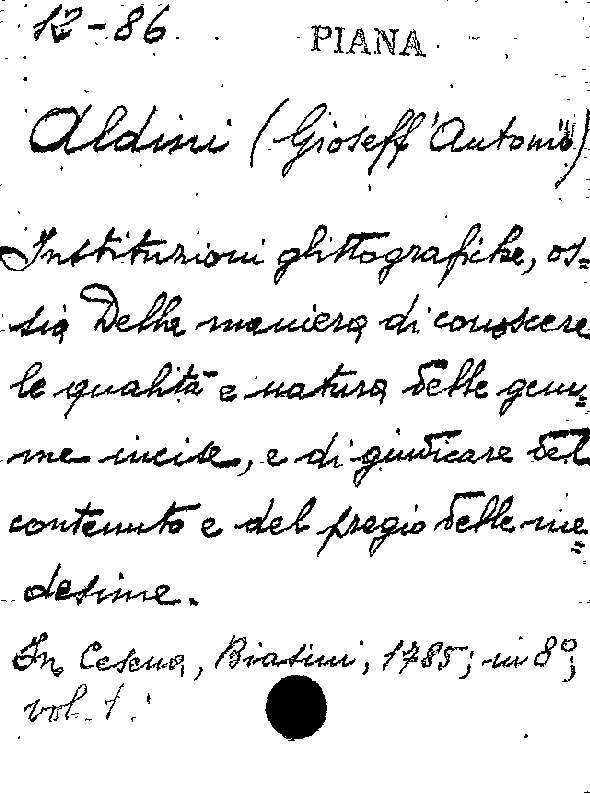 12-86 PIANA
Aldini (Gioseff'Antonio)
Instituzioni glittografiche, os=
sia Della maniera di conoscere
le qualità e natura delle gem=
me incise, e di giudicare del
contenuto e del pregio delle me=
desime.
In Cesena, Biasini, 1785; in 8º;
vol. 1.